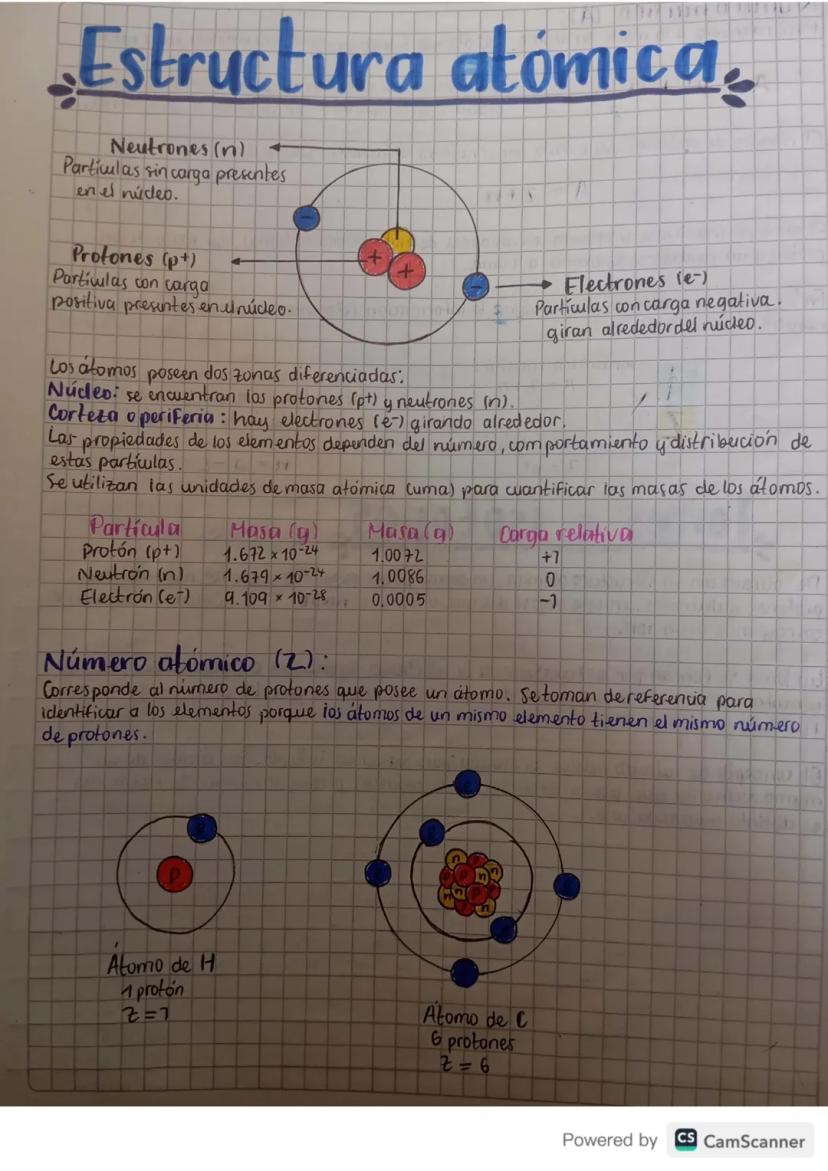 Estructura atómica
Neutrones (n)
Partículas sin carga presentes
en el núcleo.
Protones (p+)
Partículas con carga
positiva presentes en el núcleo.
Electrones (e-)
Partículas con carga negativa.
giran alrededor del núcleo.
+
+
-
-
Los átomos poseen dos zonas diferenciadas:
Núcleo: se encuentran los protones (p+) y neutrones (n).
Corteza o periferia: hay electrones (e-) girando alrededor.
Las propiedades de los elementos dependen del número, comportamiento y distribución de
estas partículas.
Se utilizan las unidades de masa atómica (uma) para cuantificar las masas de los átomos.
Partícula Masa (g) Masa (g) Carga relativa
Protón (p+) 1.672 x 10^-24 1.0072 +1
Neutrón (n) 1.679 x 10^-24 1.0086 0
Electrón (e-) 9.109 x 10^-28 0.0005 -1
Número atómico (Z):
Corresponde al número de protones que posee un átomo. Se toman de referencia para
identificar a los elementos porque los átomos de un mismo elemento tienen el mismo número
de protones.
p
n
p
n
n
n
p
n
Átomo de H
1 protón
Z = 1
Átomo de C
6 protones
Z = 6
Powered by CS CamScanner